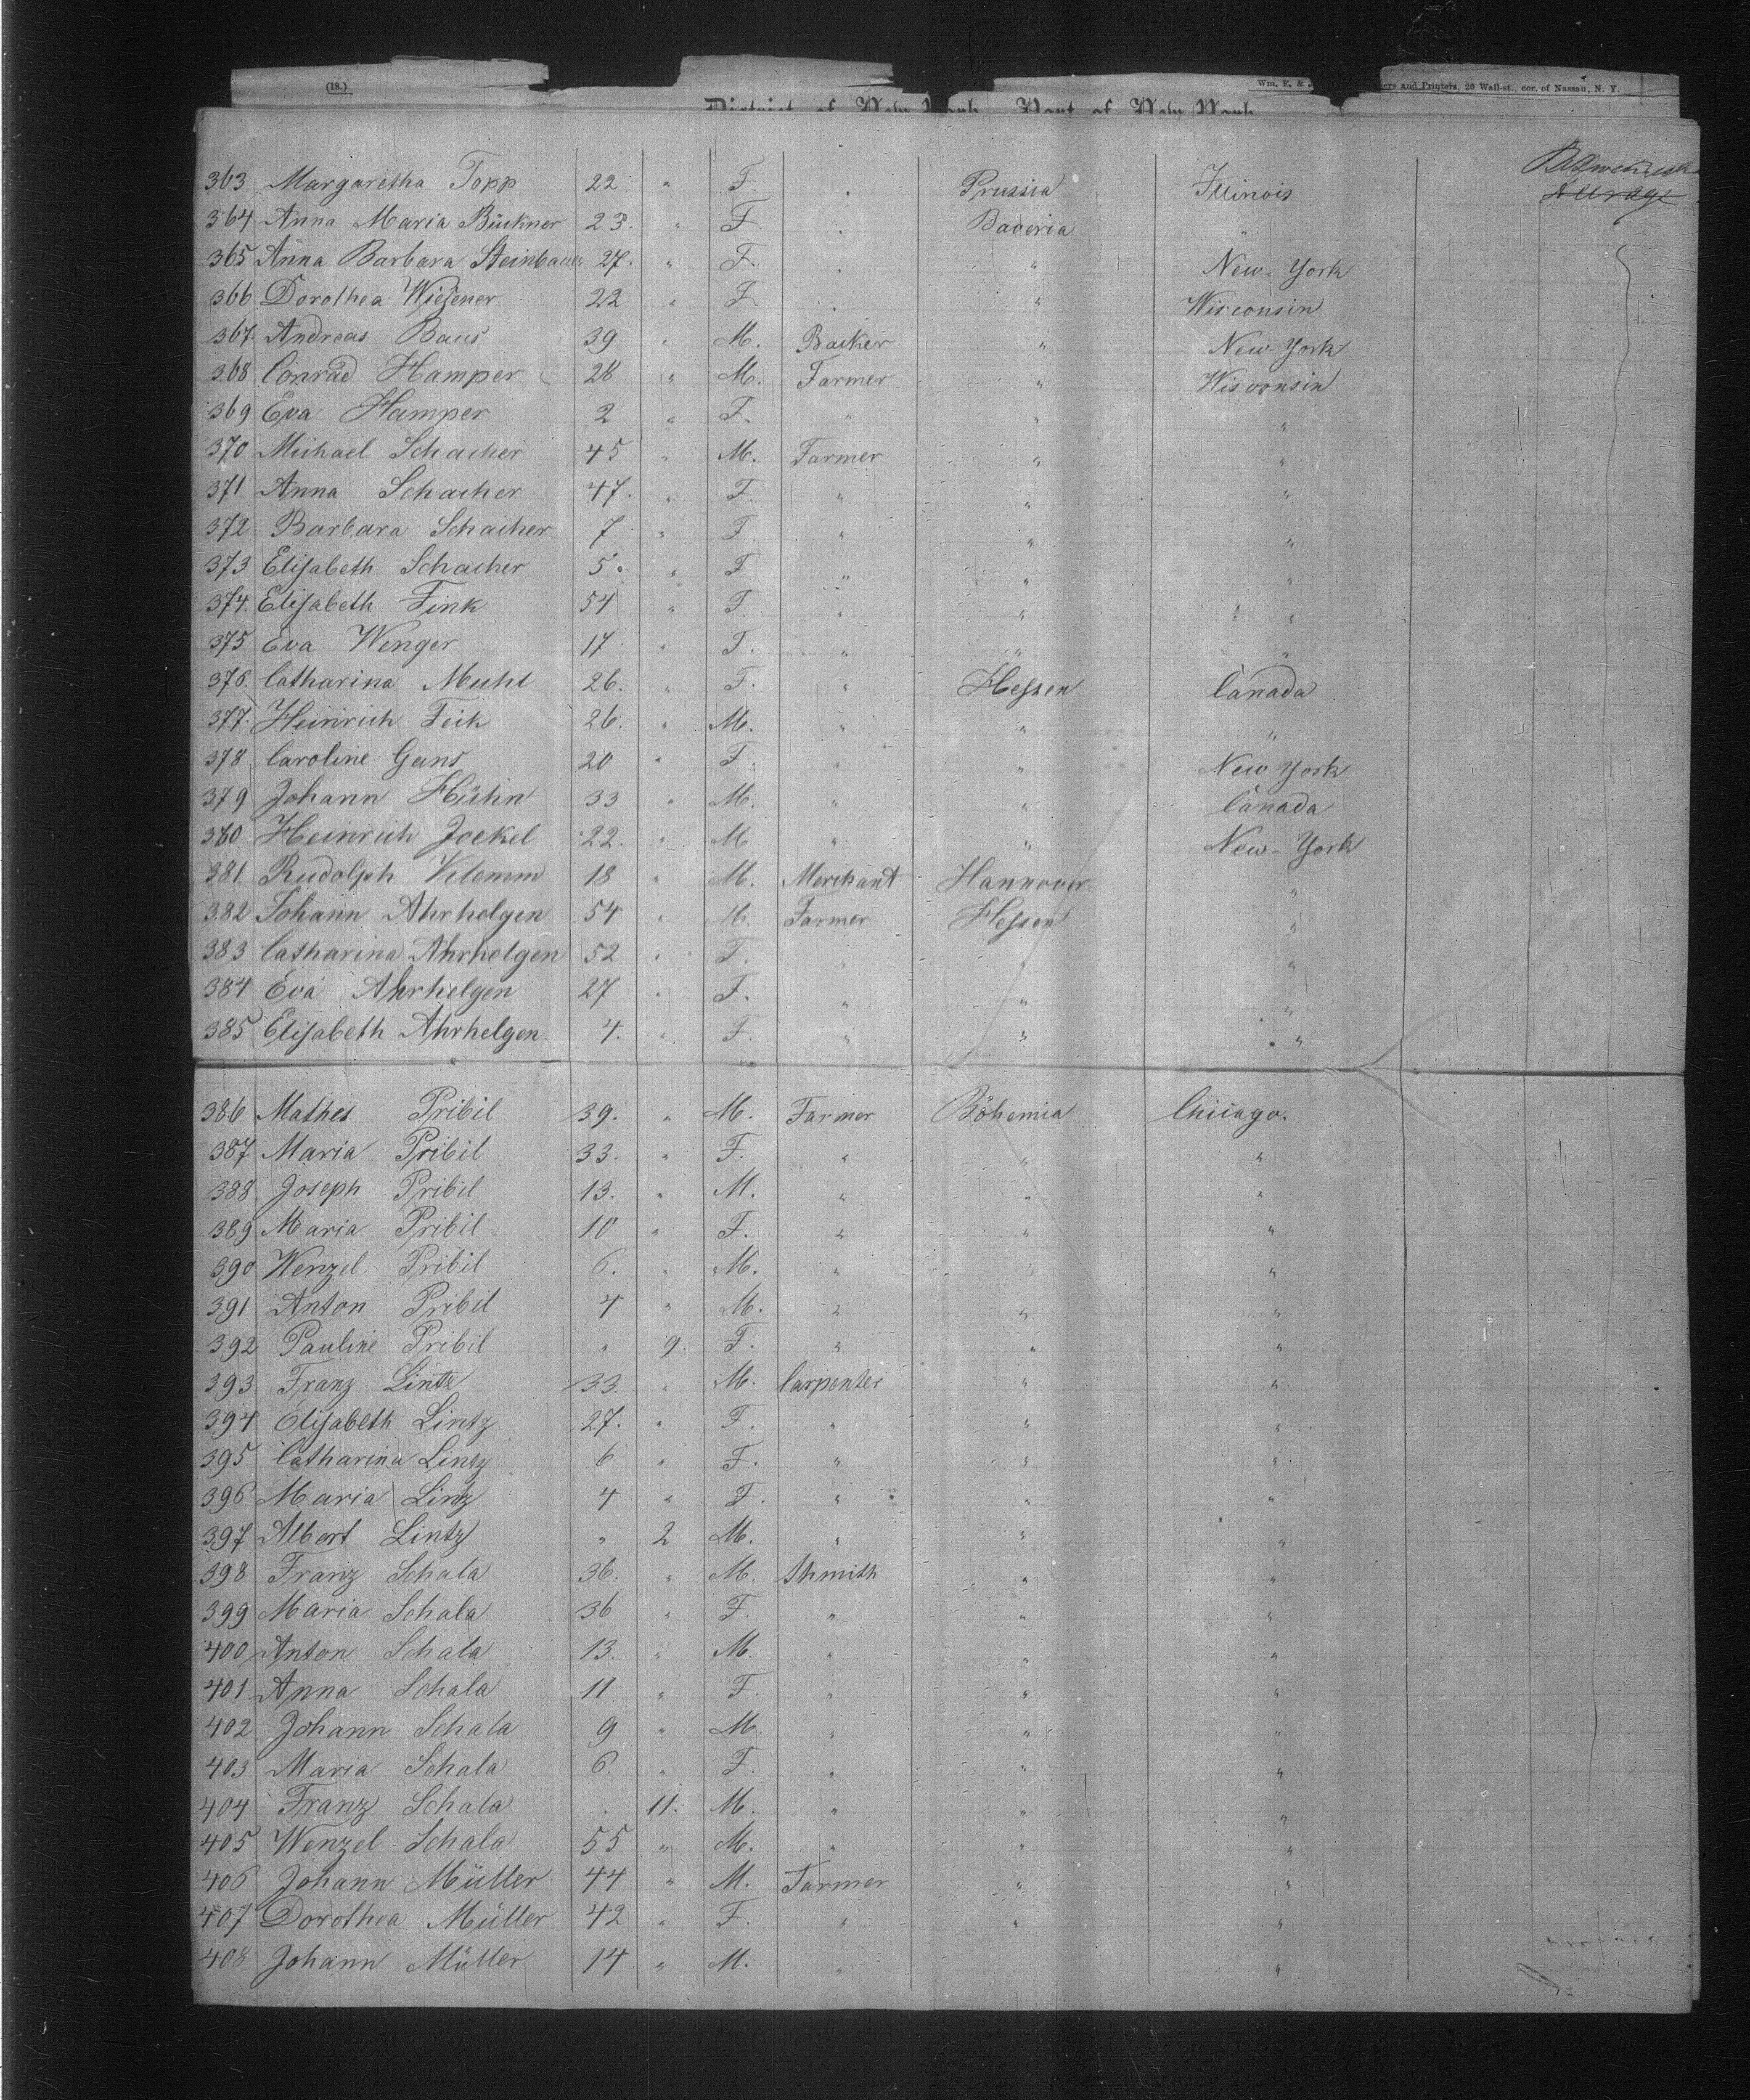 (18.) Wm. E. & ers and Printers, 20 Wall-st., cor. of Nassau, N. Y.
District of New York Port of New York
363 Margaretha Topp 22 " F. " Prussia Illinois
364 Anna Maria Bückner 23. " F. " Baveria "
365 Anna Barbara Steinbauer 27. " F. " " New-York
366 Dorothea Wiesener 22 " F. " " Wisconsin
367. Andreas Baus 39 " M. Backer " New-York
368 Conrad Hamper 28 " M. Farmer " Wisconsin
369 Eva Hamper 2 " F. " " "
370 Michael Schacher 45 " M. Farmer " "
371 Anna Schacher 47. " F. " " "
372 Barbara Schacher 7 " F. " " "
373 Elisabeth Schacher 5. " F. " " "
374. Elisabeth Fink 54 " F. " " "
375 Eva Wenger 17 " F. " " "
376. Catharina Muhl 26. " F. " Hessen Canada
377. Heinrich Feik 26. " M. " " "
378 Caroline Gans 20 " F. " " New York
379 Johann Hühn 33 " M. " " Canada
380. Heinrich Jockel 22. " M " " New-York
381. Rudolph 18 " M. Merchant Hannover "
382 Johann Ahrhelgen 54 " M. Farmer Hessen "
383 Catharina Ahrhelgen 52 " F. " " "
384 Eva Ahrhelgen 27 " F. " " "
385 Elisabeth Ahrhelgen. 4. " F. " " "
386 Mathes Pribil 39. " M. Farmer Böhemia Chicago.
387 Maria Pribil 33. " F. " " "
388. Joseph Pribil 13. " M. " " "
389 Maria Pribil 10 " F. " " "
390 Wenzel Pribil 6. " M. " " "
391 Anton Pribil 4 " M. " " "
392 Pauline Pribil " 9. F. " " "
393 Franz Lintz 33. " M. Carpenter " "
394 Elisabeth Lintz 27. " F. " " "
395 Catharina Lintz 6 " F. " " "
396 Maria Linz 4 " F. " " "
397 Albert Lintz " 2 M. " " "
398 Franz Schala 36. " M. Shmith " "
399 Maria Schala 36 " F. " " "
400 Anton Schala 13. " M. " " "
401 Anna Schala 11 " F. " " "
402 Johann Schala 9 " M. " " "
403 Maria Schala 6. " F. " " "
404 Franz Schala . 11. M. " " "
405 Wenzel Schala 55 " M. " " "
406 Johann Müller 44 " M. Farmer " "
407 Dorothea Müller 42 " F. " " "
408 Johann Müller 14 " M. " "